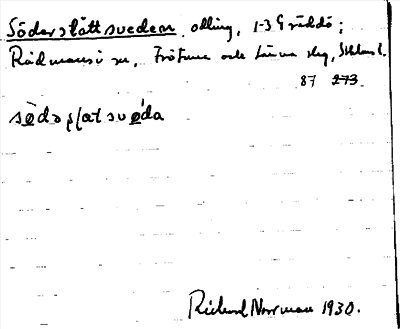 Söderslåttsveden odling, 1-3 Gräddö;
Rådmansö sn, Frötuna och Länna slg, Sthlms l.
87 273
södəṣlatsvéda
Rickard Norrman 1930.